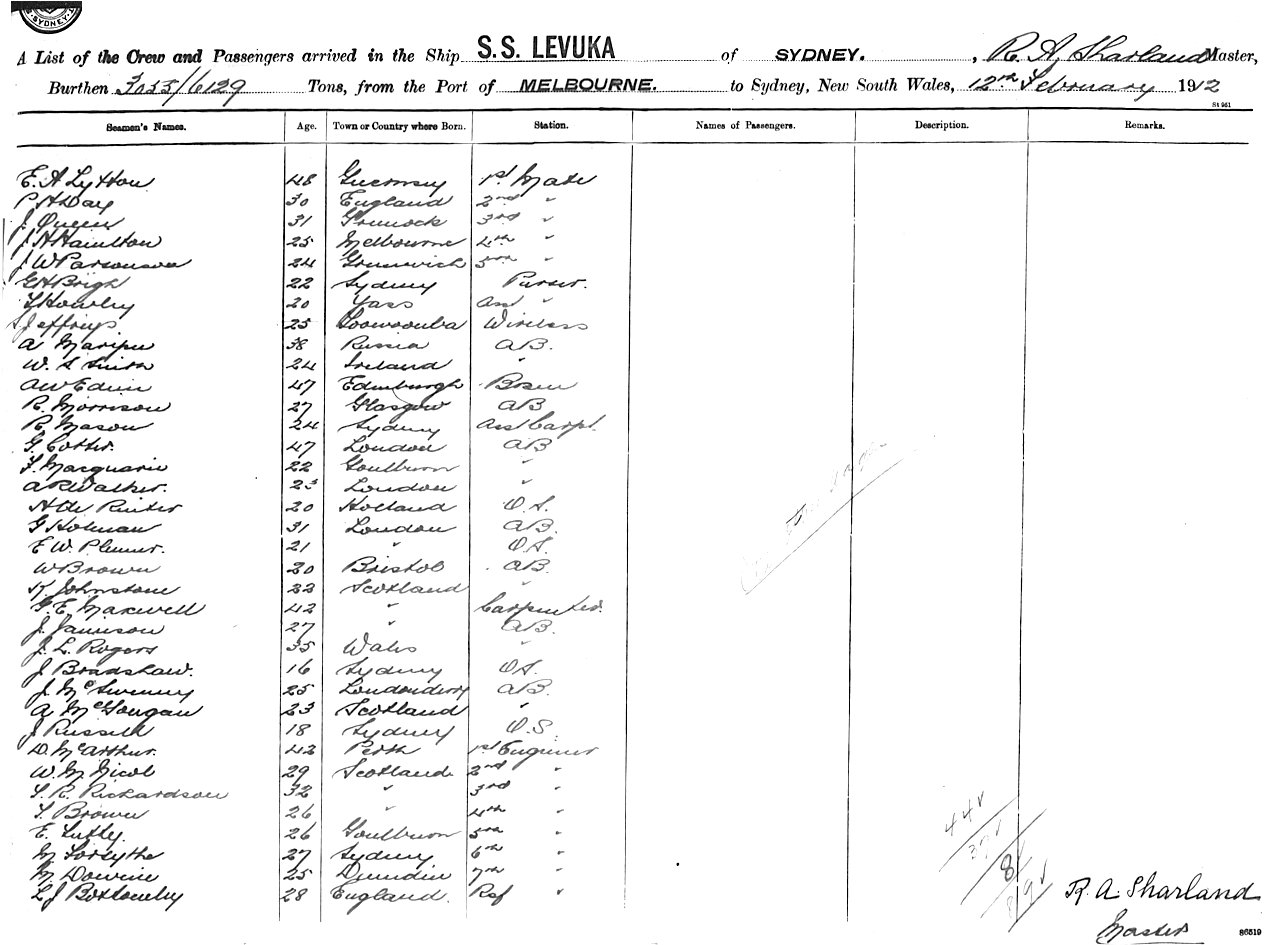 SYDNEY
A List of the Crew and Passengers arrived in the Ship S.S. LEVUKA of SYDNEY. , R. A. Sharland Master,
Burthen /6129 Tons, from the Port of MELBOURNE. to Sydney, New South Wales, 12th February 1912
St 961
Seamen's Names. Age. Town or Country where Born. Station. Names of Passengers. Description. Remarks.
E. A Lytton 48 Guernsey 1st Mate
P A Day 30 England 2nd "
J. Queen 31 Greenock 3rd "
J. H Hamilton 25 Melbourne 4th "
J. W Parsonson 24 Greenwich 5th "
G H Brigh 22 Sydney Purser.
Howley 20 Yass Asst "
Jeffreys 25 Toowoomba Wireless
A 38 Russia AB.
W. S. Smith 24 Ireland "
A W Edwin 47 Edinburgh Bosun
R. Morrison 27 Glasgow AB
R. Mason 24 Sydney Asst Carpt.
G. Cotter. 47 London AB
F. Macquarie 22 Goulburn "
A R Walker. 23 London "
H de Ruiter 20 Holland O.S.
G Holman 31 London AB.
E W. Plumer. 21 " OS.
W Brown 20 Bristol AB.
K. Johnstone 22 Scotland "
G. E. Maxwell 42 " Carpenter.
J. Jamieson 27 " AB.
J. L. Rogers 35 Wales "
J Bradshaw. 16 Sydney OS.
J. McSweeney 25 Londonderry AB.
A McGougan 23 Scotland "
J Russell 18 Sydney O.S.
D. McArthur. 42 Perth 1st Engineer
W. M Nicol 29 Scotland 2nd "
R. Richardson 32 " 3rd "
Brown 26 " 4th "
E. Luthy. 26 Goulburn 5th "
M Forsythe 27 Sydney 6th "
M Downie 25 Dunedin 7th "
L J Bottomley 28 England. Ref "
44
37
8
89
R. A. Sharland
Master
86519